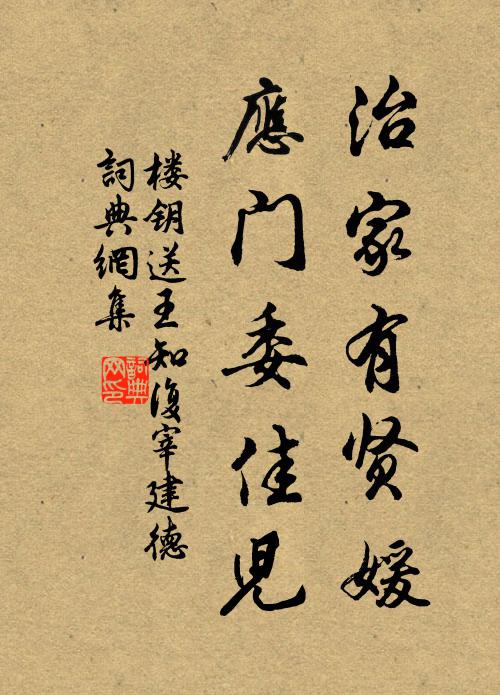 治家有贤媛
應门委佳児
楼钥送王知復宰建德
詞典網集
詞典网印